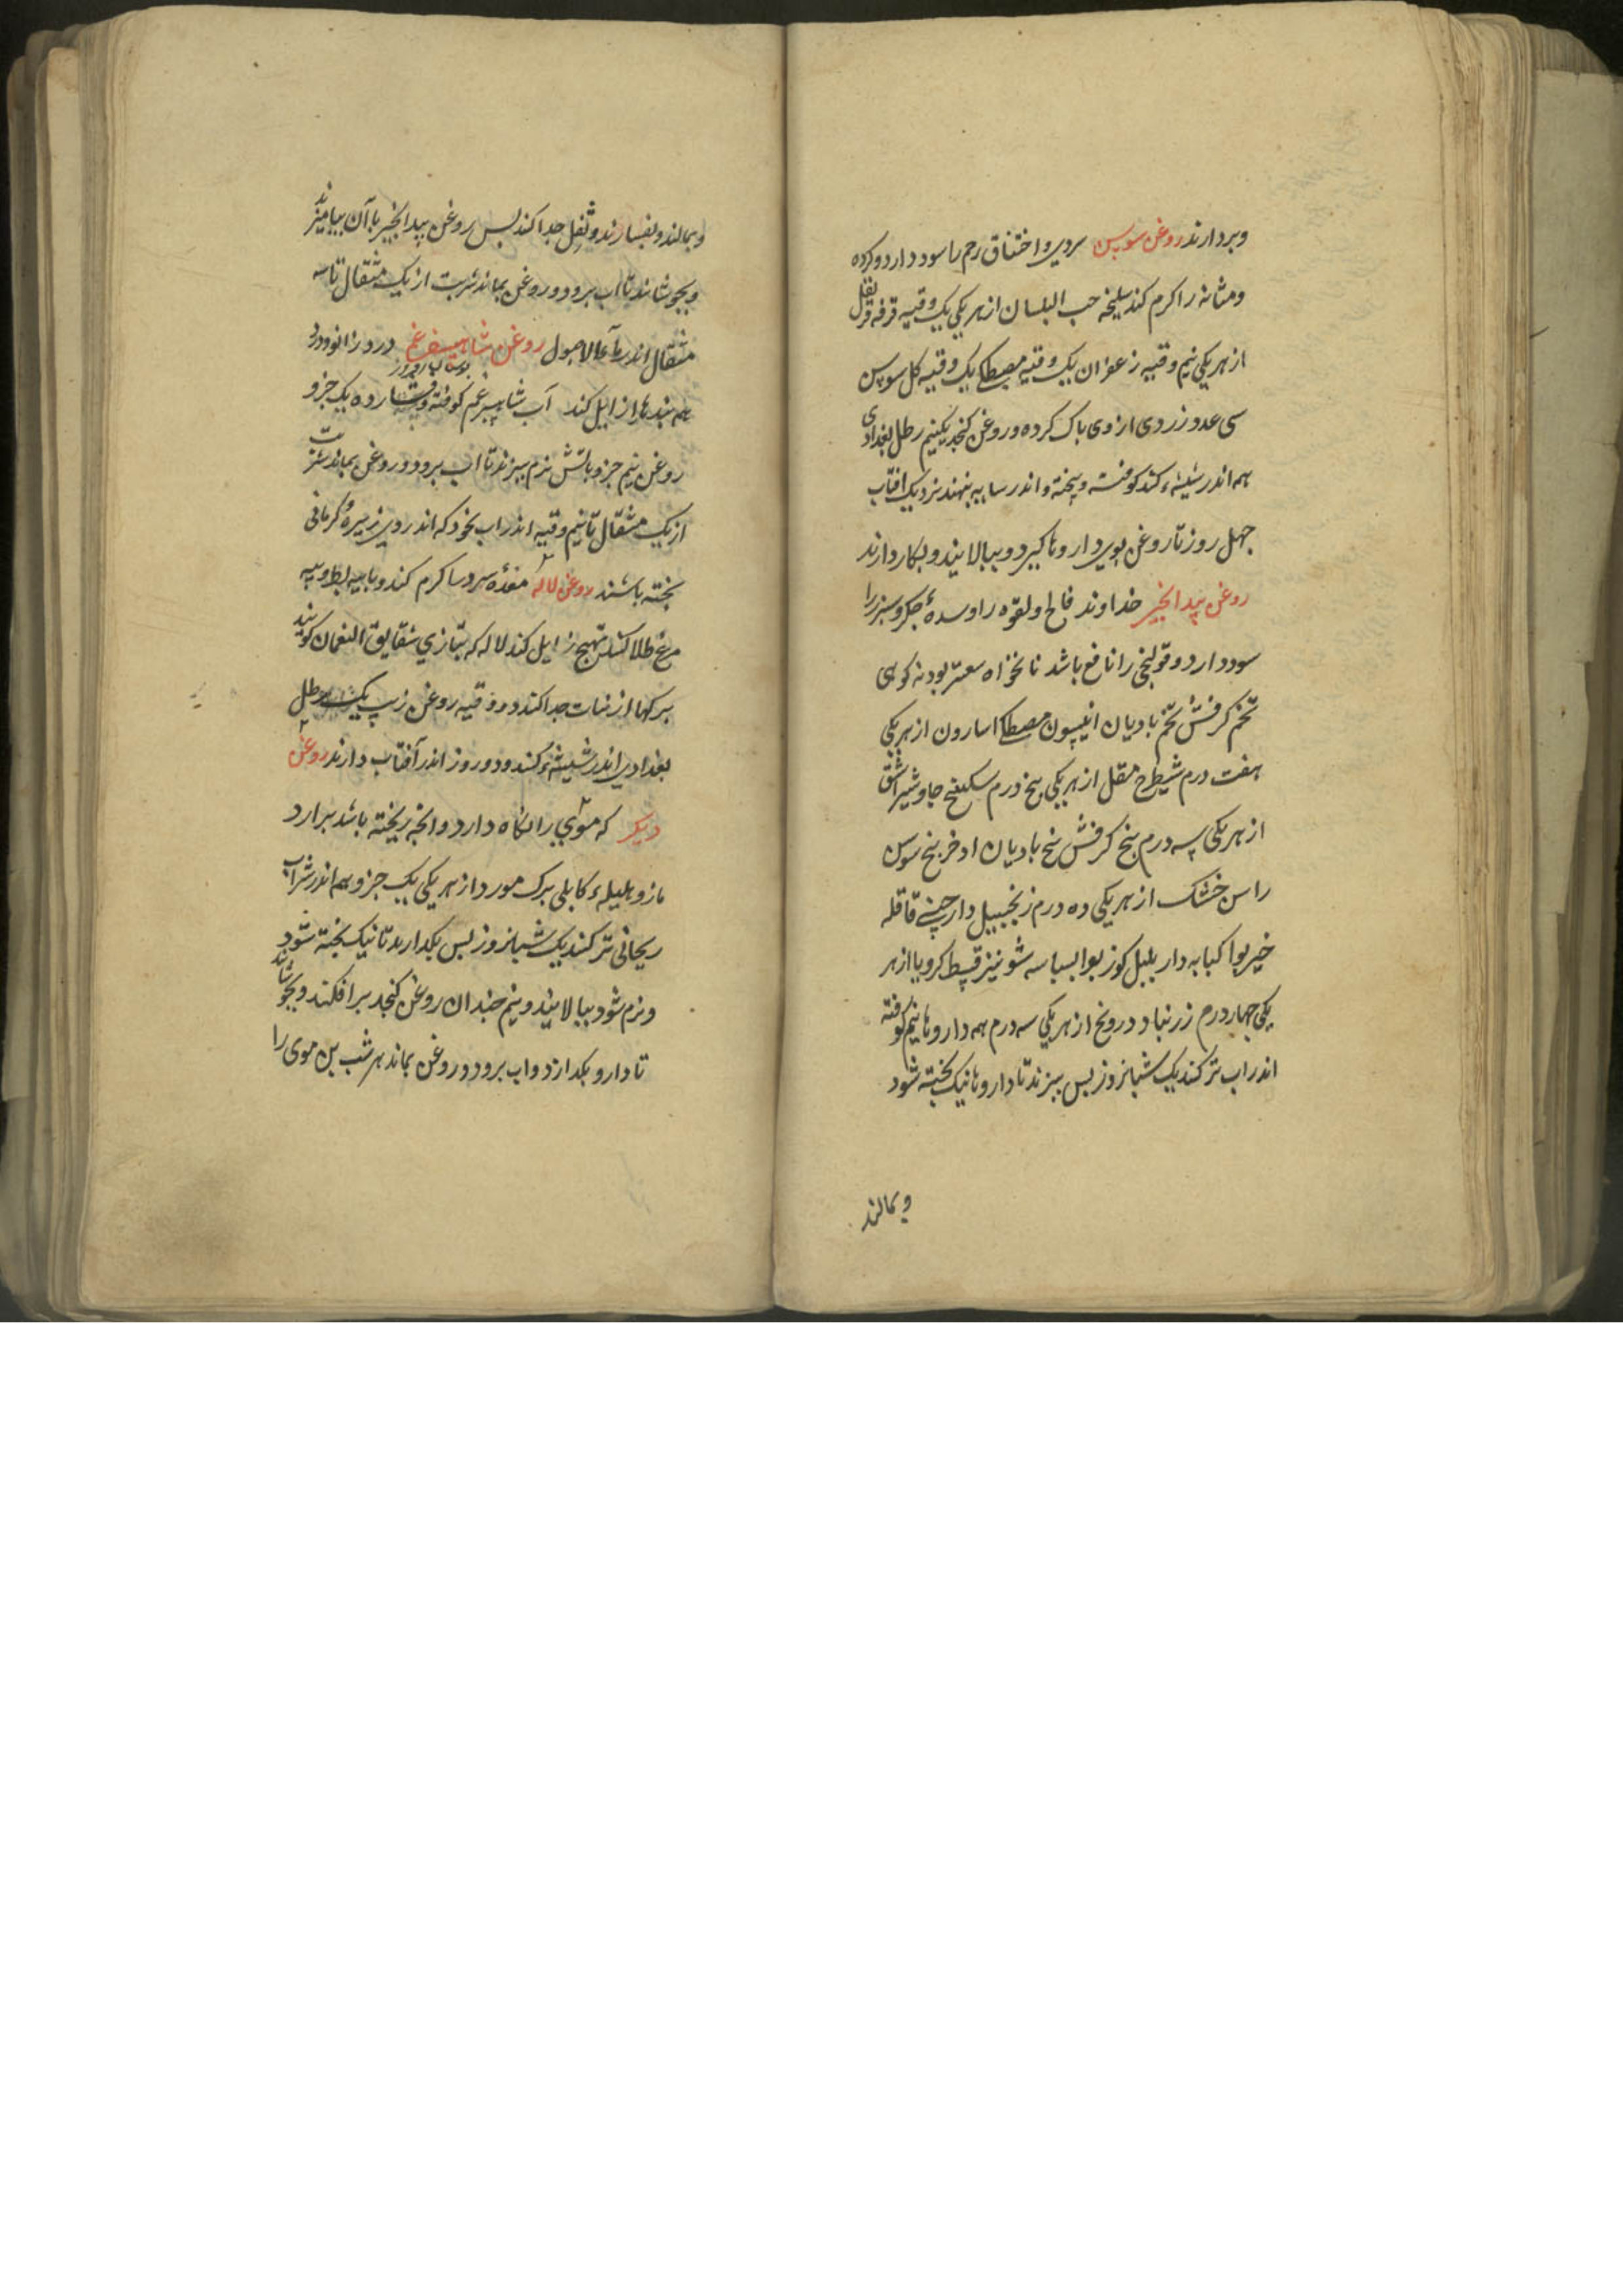 وبردارند روغن سوسن سردی و اختناق رحم را سود دارد و کرده
ومثانه را کرم کند سلیخه حب البلسان از هر یکی یک وقیه قرفه قرنفل
از هر یکی نیم وقیه زعفران یک وقیه مصطکی یک وقیه کل سوسن
سی عدد زردی از وی باک کرده و روغن کنجد یکنیم رطل بغدادی
همه اندر شیشهٔ کنند کوفته و بیخته و اندر سایه بنهند نزدیک افتاب
جهل روز تا روغن بوی داروها کیرد و ببالایند و بکار دارند
روغن بیدانجیر خداوند فالج و لقوه را و سدهٔ جکر و سبرز را
سود دارد و قولنج را نافع باشد نانخواه سعتر بودنه کوهی
تخم کرفش تخم بادیان انیسون مصطکی اسارون از هر یکی
هفت درم شیطرج مقل از هر یکی بنج درم سکبینج جاوشیر اشق
از هر یکی سه درم بنج کرفش بنج بادیان اذخر بنج سوسن
راسن خشک از هر یکی ده درم زنجبیل دارچینی قاقله
خیربوا کبابه دار بلبل کوزبوا بسباسه شونیز قسط کرویا از هر
یکی جهار درم زرنباد درونج از هر یکی سه درم همه داروها نیم کوفته
اندر اب تر کنند یک شبانروز بس ببزند تا داروها نیک بخته شود
وبمالند
وبمالند وبفسارند و ثفل جدا کنند بس روغن بیدانجیر با آن بیامیزند
وبجوشانند تا اب برود و روغن بماند شربت از یک مثقال تا سه
مثقال اندر ماء الاصول روغن شاهسفرغم درد زانو و درد
همه بندها زایل کند آب شاهسبرغم کوفته و فشارده یک جزو
روغن نیم جزو باتش نرم ببزند تا اب برود و روغن بماند شربت
از یک مثقال تا نیم وقیه اندر اب بخود که اندر وی زیرهٔ کرمانی
بخته باشند روغن لاله معدهٔ سرد را کرم کند و با بیه بط و بیه
مرغ طلا کنند تهیج زایل کند لاله که بتازی شقایق النعمان کویند
برکها از نبات جدا کنند دو وقیه روغن زیت یک رطل
بغدادی اندر شیشهٔ کنند و دو روز اندر آفتاب دارند روغن
دیکر که موی را نکاه دارد و انجه ریخته باشد برارد
مازو هلیلهٔ کابلی برک مورد از هر یکی یک جزو همه اندر شراب
ریحانی تر کنند یک شبانروز بس بکدارند تا نیک بخته شود
ونرم شود ببالایند و نیم جندان روغن کنجد برافکنند و بجوشانند
تا دارو بکدازد و اب برود و روغن بماند هر شب بن موی را